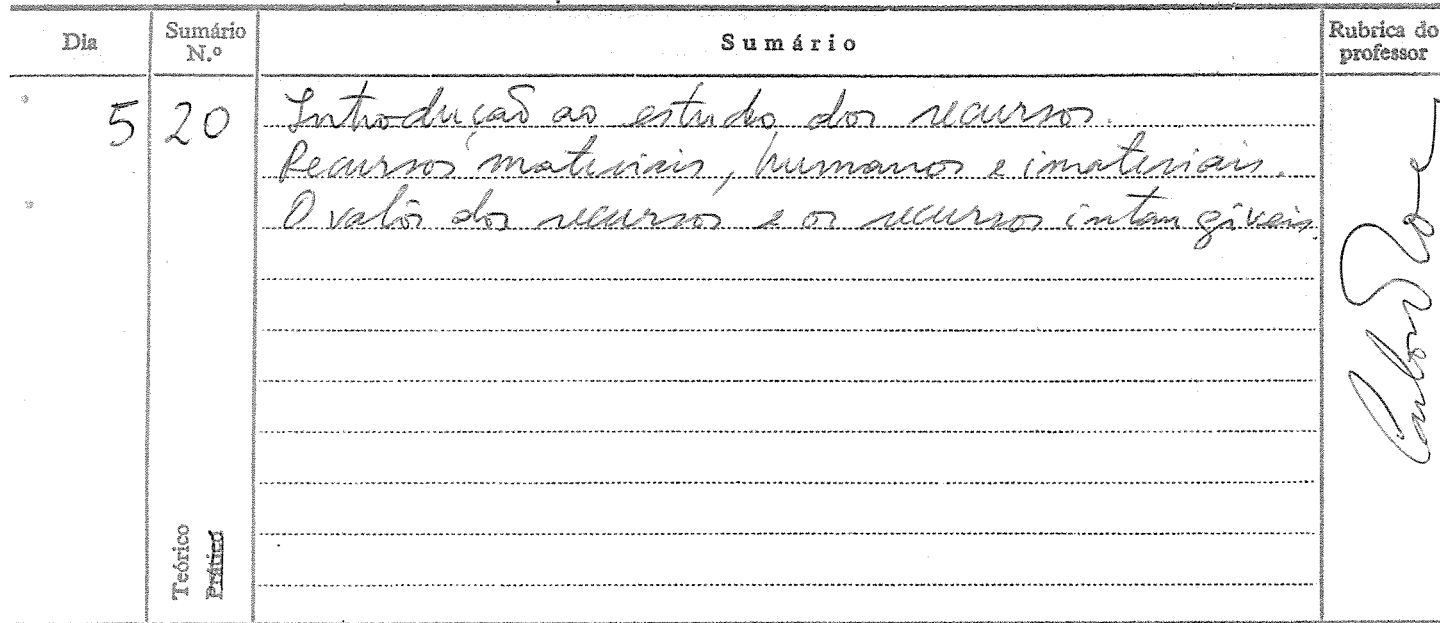 Dia
Sumário N.º
Sumário
Rubrica do professor
5
20
Introdução ao estudo dos recursos.
Recursos materiais, humanos e imateriais.
O valor dos recursos e os recursos intangíveis
Teórico
Prático